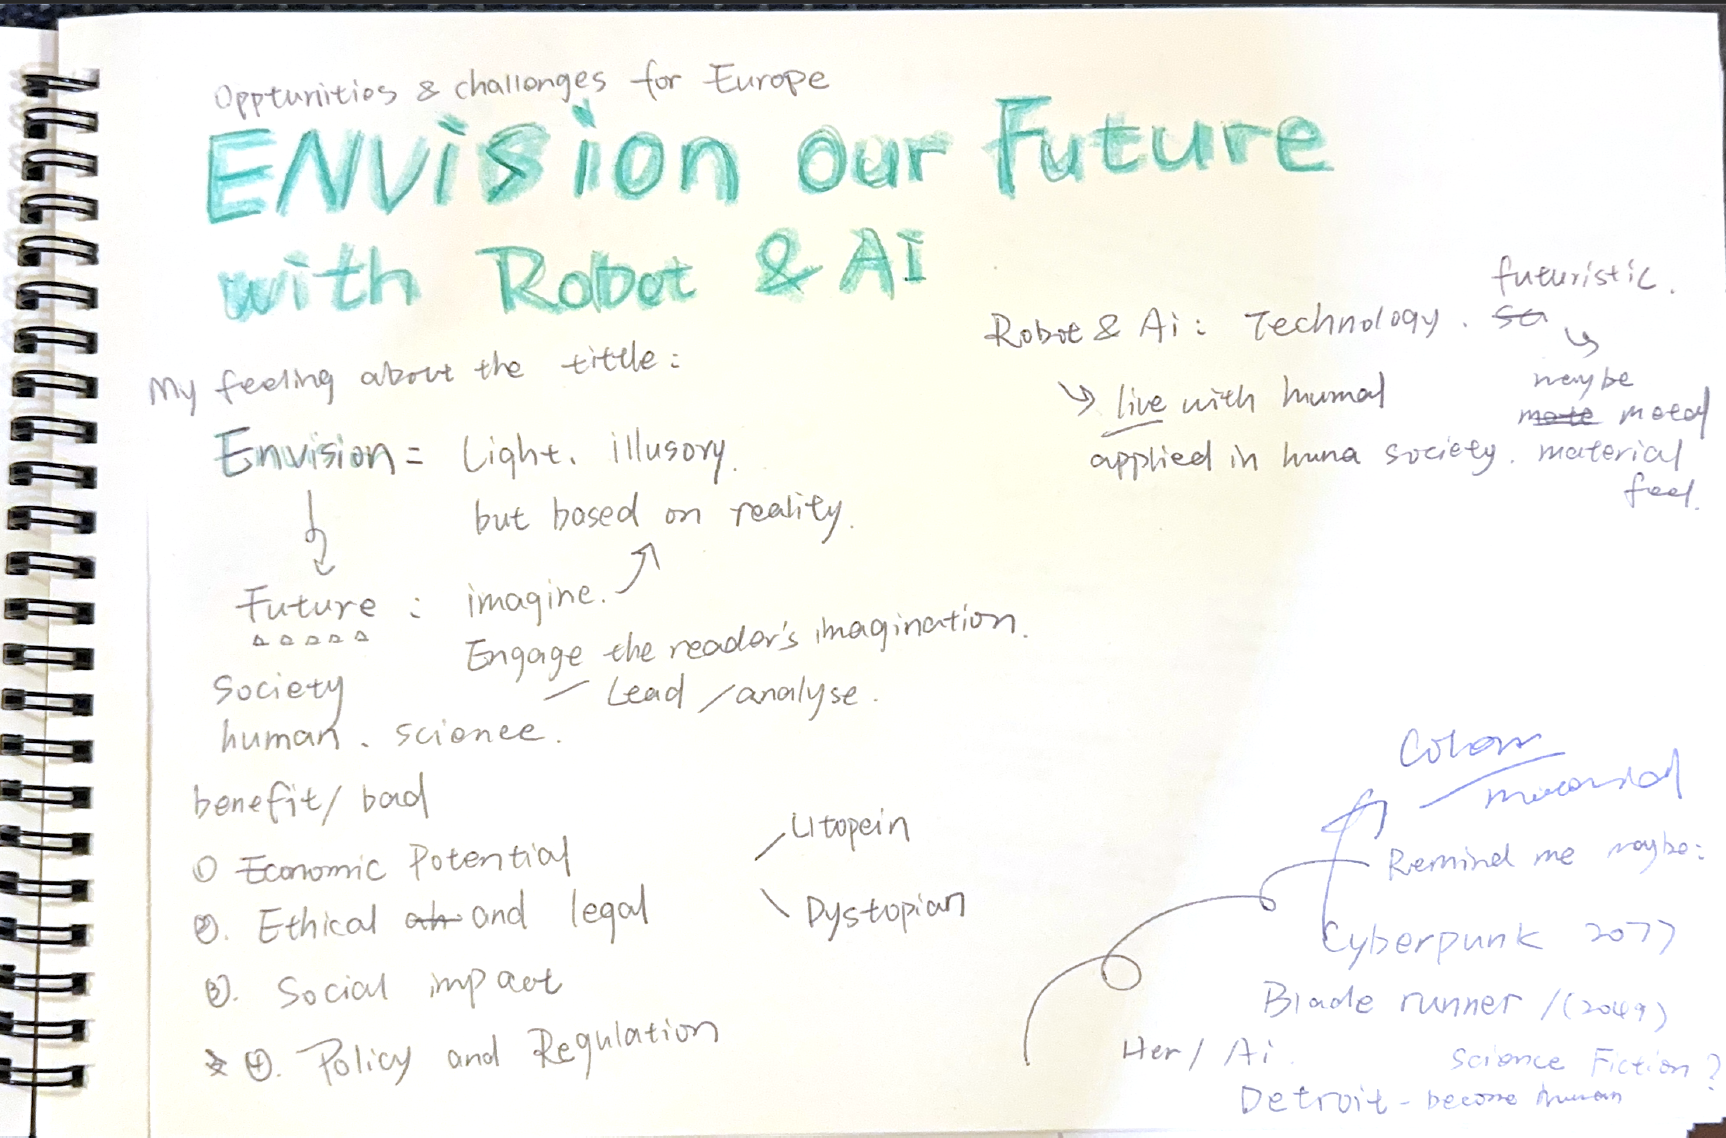 Oppturnities & challenges for Europe
ENVision our Future
with Robot & Ai
My feeling about the tittle:
Envision = Light. illusory.
but based on reality.
Future : imagine.
Engage the reader's imagination.
Lead / analyse.
Society
human. science.
benefit/ bad
① Economic Potential
②. Ethical and legal
③. Social impact
④. Policy and Regulation
Utopein
Dystopian
Robot & Ai: Technology. futuristic.
live with human
applied in huna society.
maybe
metal
material
feel.
Remind me maybe:
Cyberpunk 2077
Blade runner /(2049)
Her / Ai.
Science Fiction?
Detroit - become human